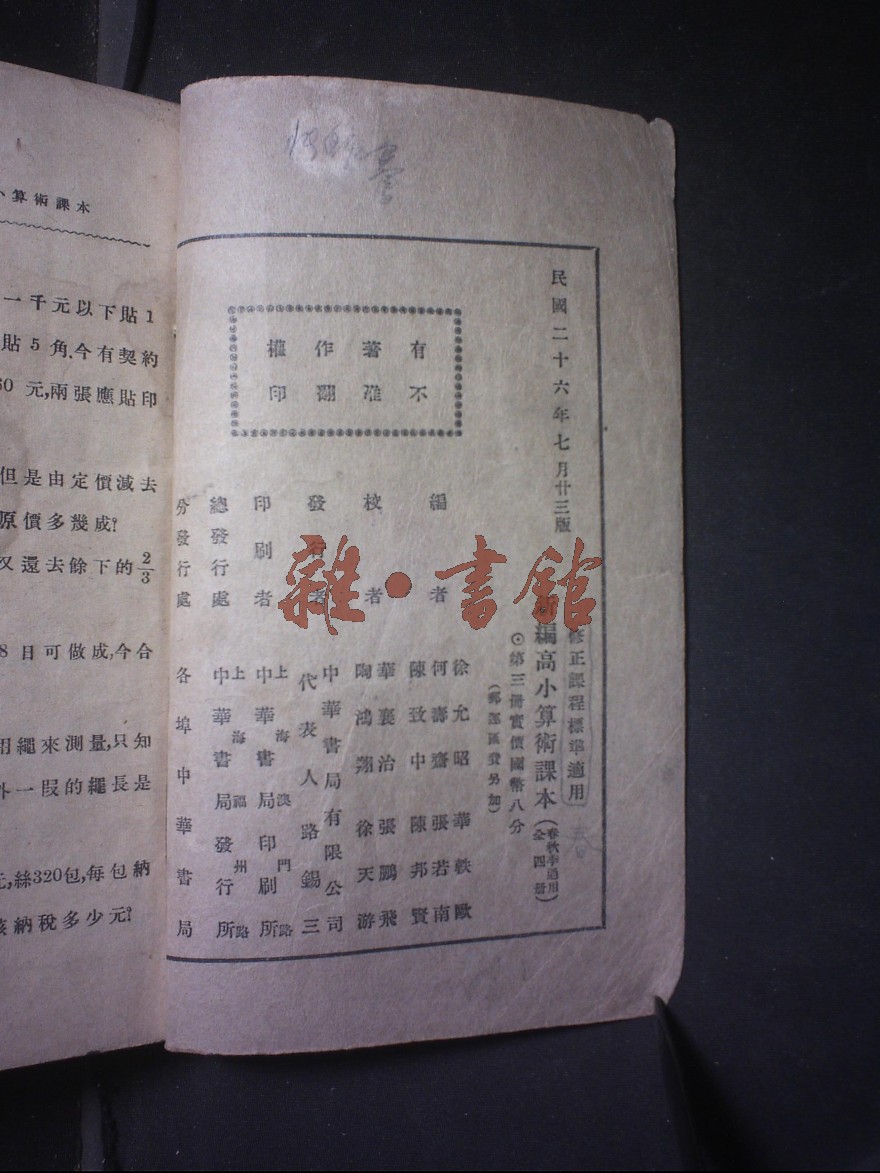 小算術課本
一千元以下貼1
貼5角.今有契約
60元,兩張應貼印
但是由定價減去
原價多幾成?
又還去餘下的2/3
8日可做成,今合
用繩來測量,只知
外一段的繩長是
元,絲320包,每包納
該納稅多少元?
民國二十六年七月廿三版
修正課程標準適用
新編高小算術課本(春秋季通用 全四册)
⊙第三册實價國幣八分
(郵運匯費另加)
有著作權
不准翻印
編者
徐允昭 華軼歐
何壽齋 張若南
陳致中 陳邦賢
校者
華襄治 張鵬飛
陶鴻翔 徐天游
發行者
中華書局有限公司
代表人 路錫三
印刷者
上海澳門路
中華書局印刷所
總發行處
上海福州路
中華書局發行所
分發行處
各埠中華書局
雜·書館